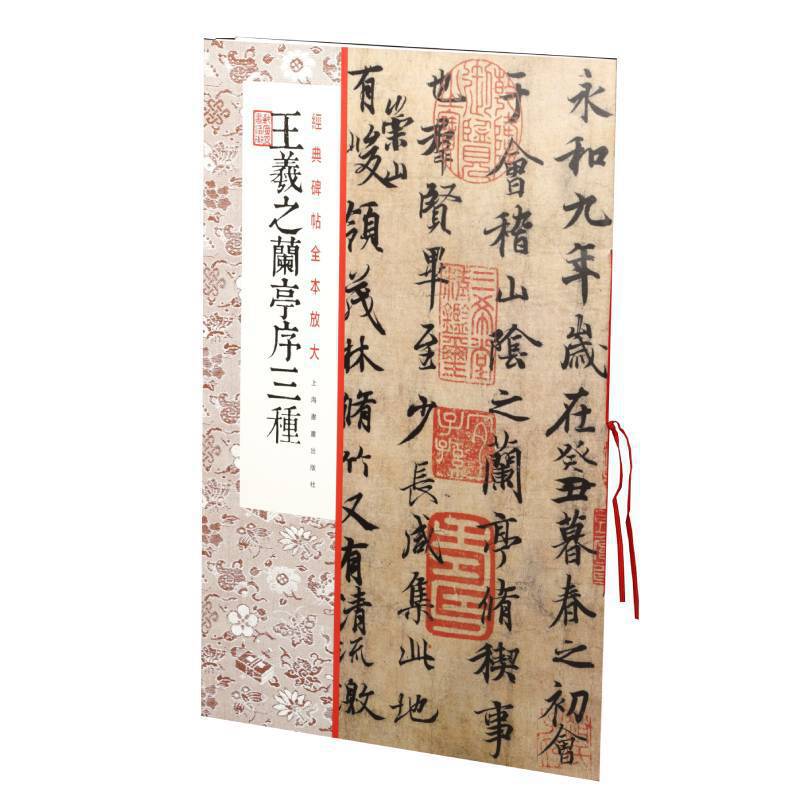 永和九年歲在癸丑暮春之初會
于會稽山陰之蘭亭脩稧事
也羣賢畢至少長咸集此地
有崇山峻領茂林脩竹又有清流激
三希堂精鑒璽
宜子孫
經典碑帖全本放大
上海書畫出版社
王羲之蘭亭序三種